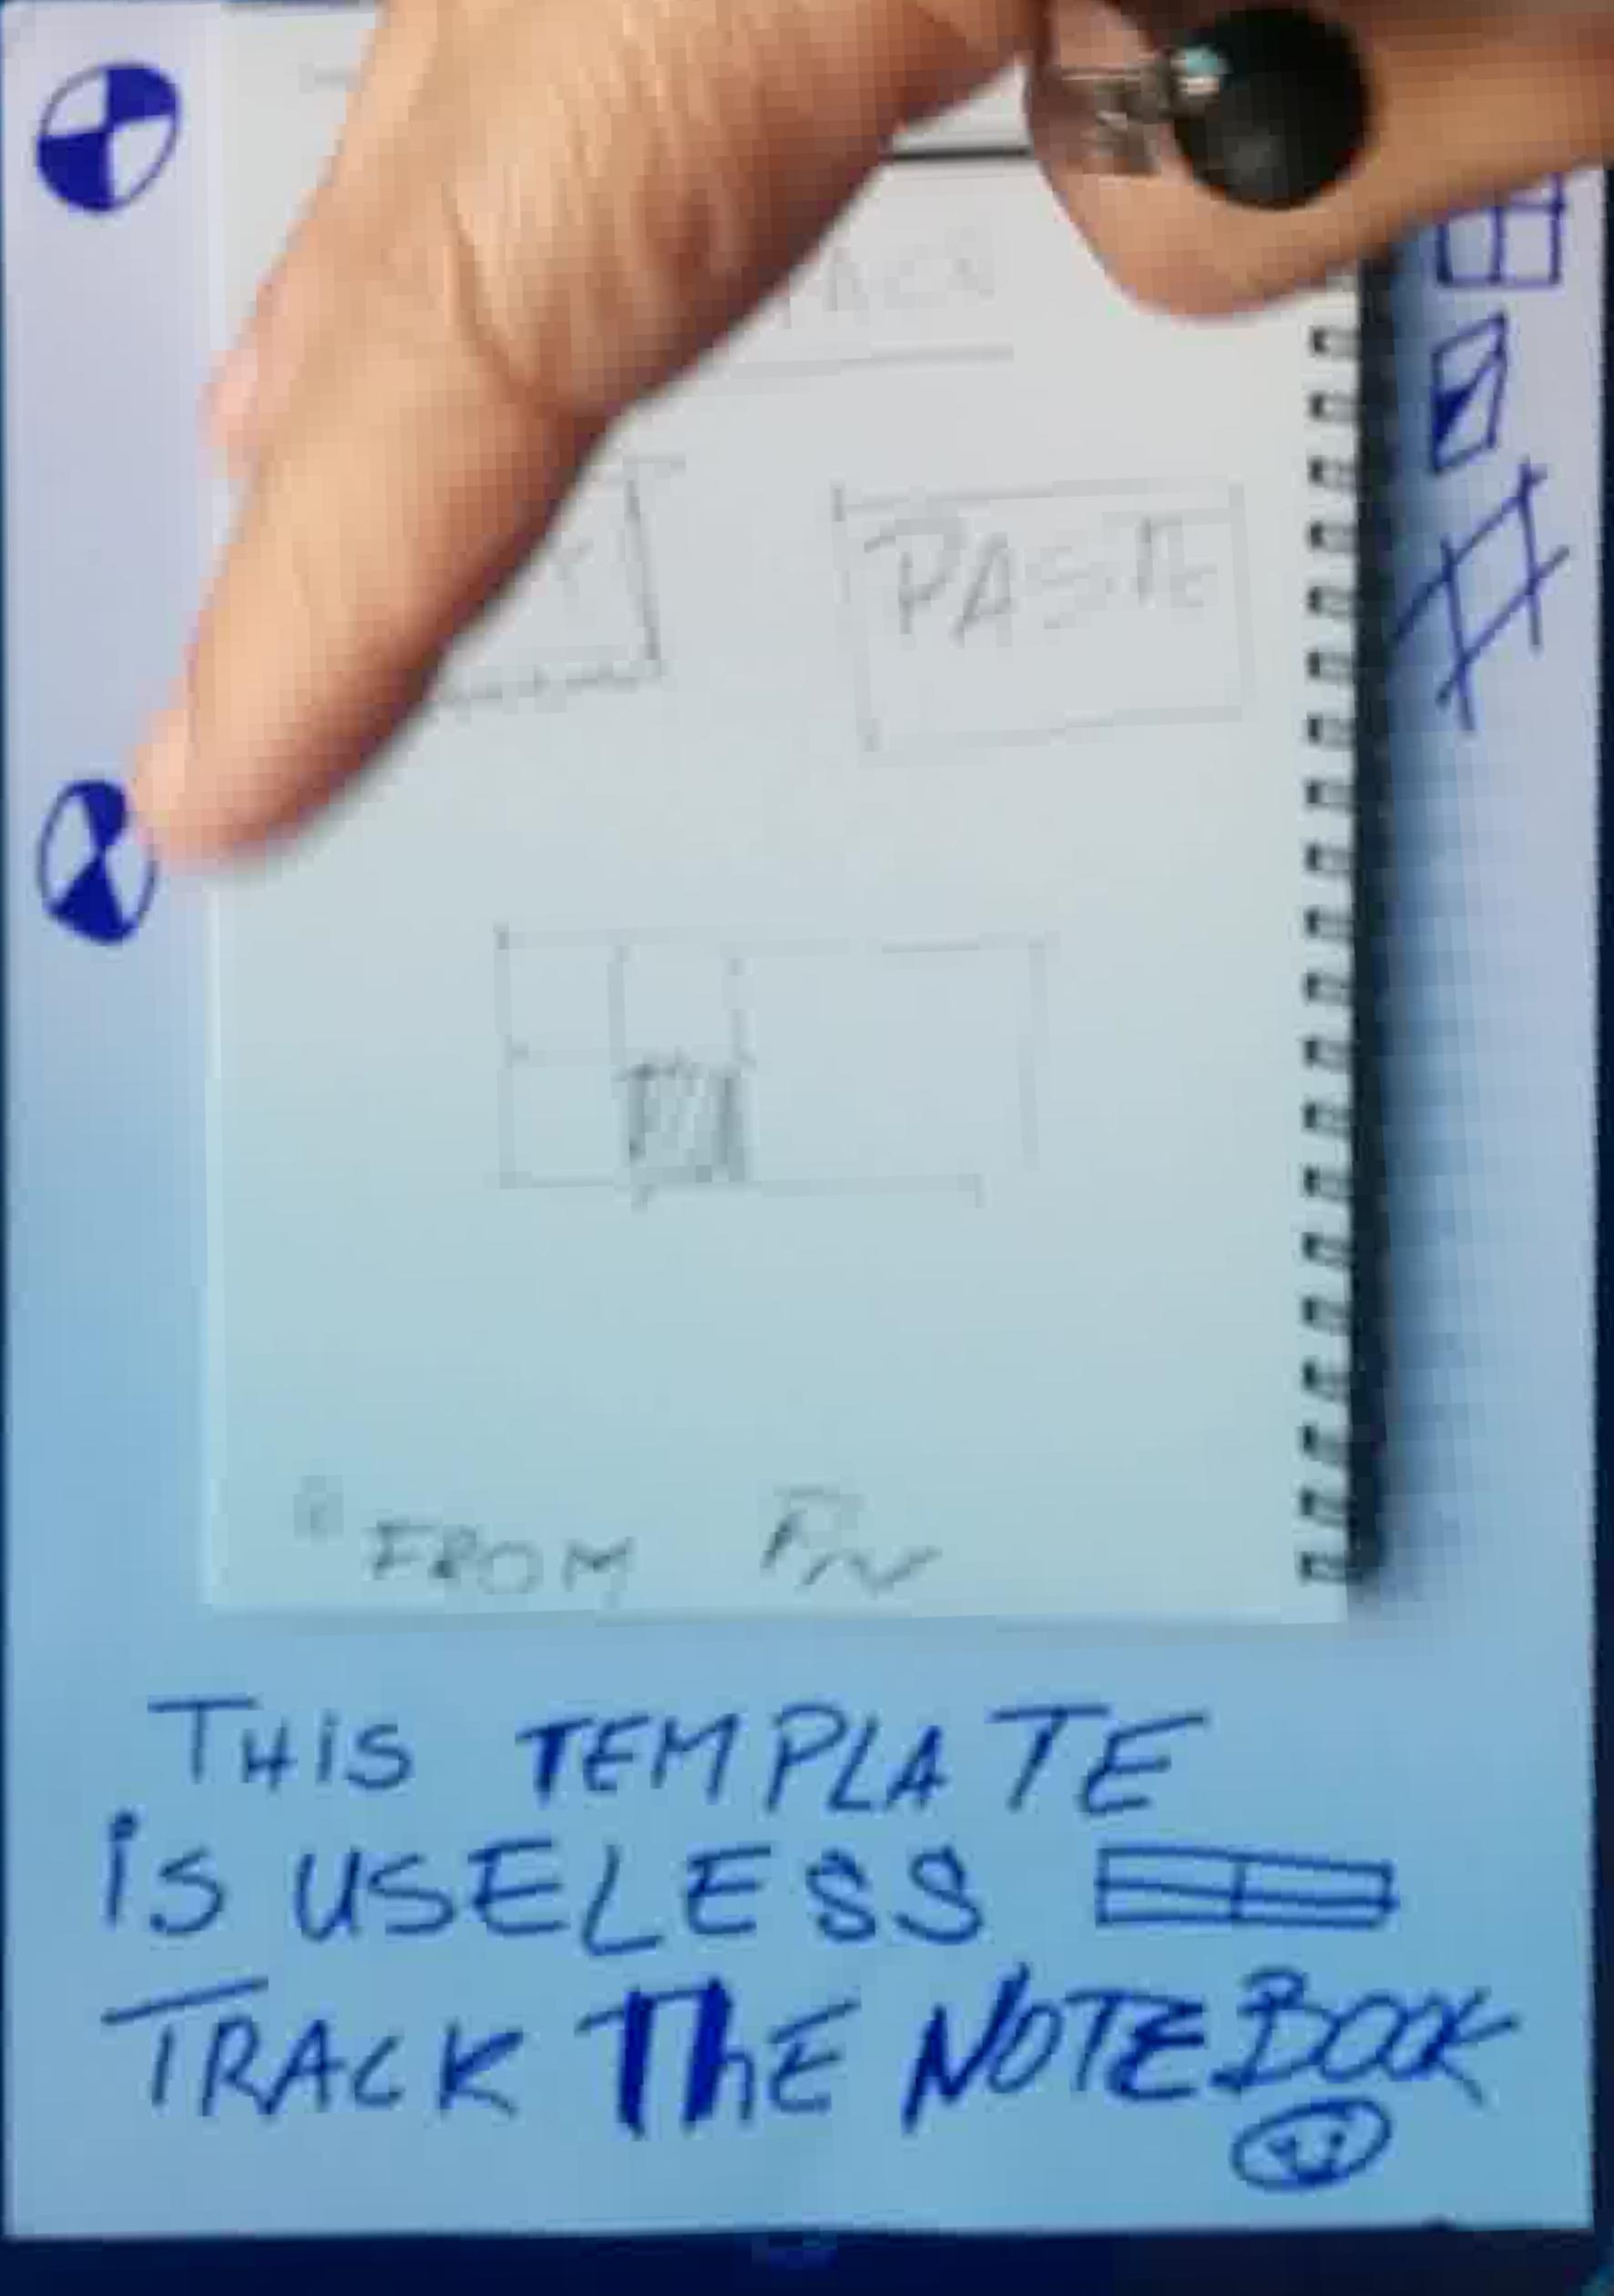 PASTE
FROM
THIS TEMPLATE
iS USELESS
TRACK THE NOTEBOOK